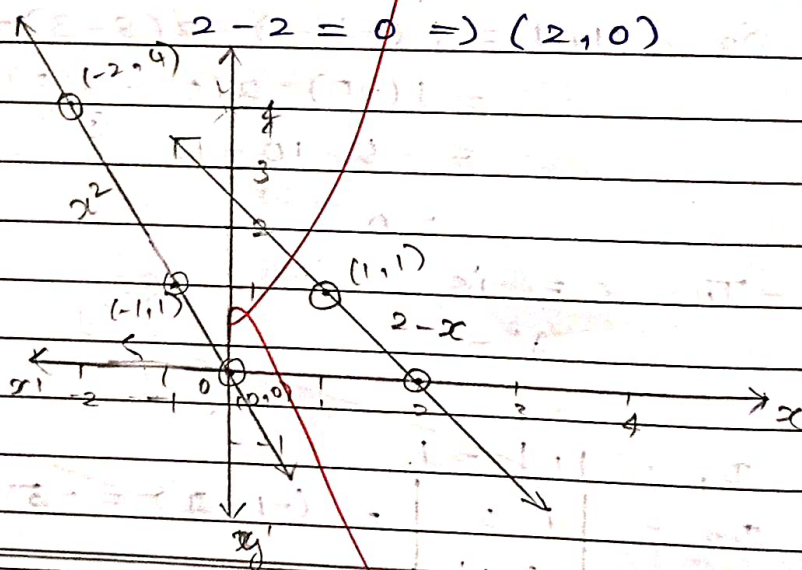 2 - 2 = 0 => (2, 0)
(-2, 4)
y
4
3
x²
2
(1, 1)
1
(-1, 1)
2 - x
x' -2 -1 0 (0,0) 1 2 3 4 x
-1
y'